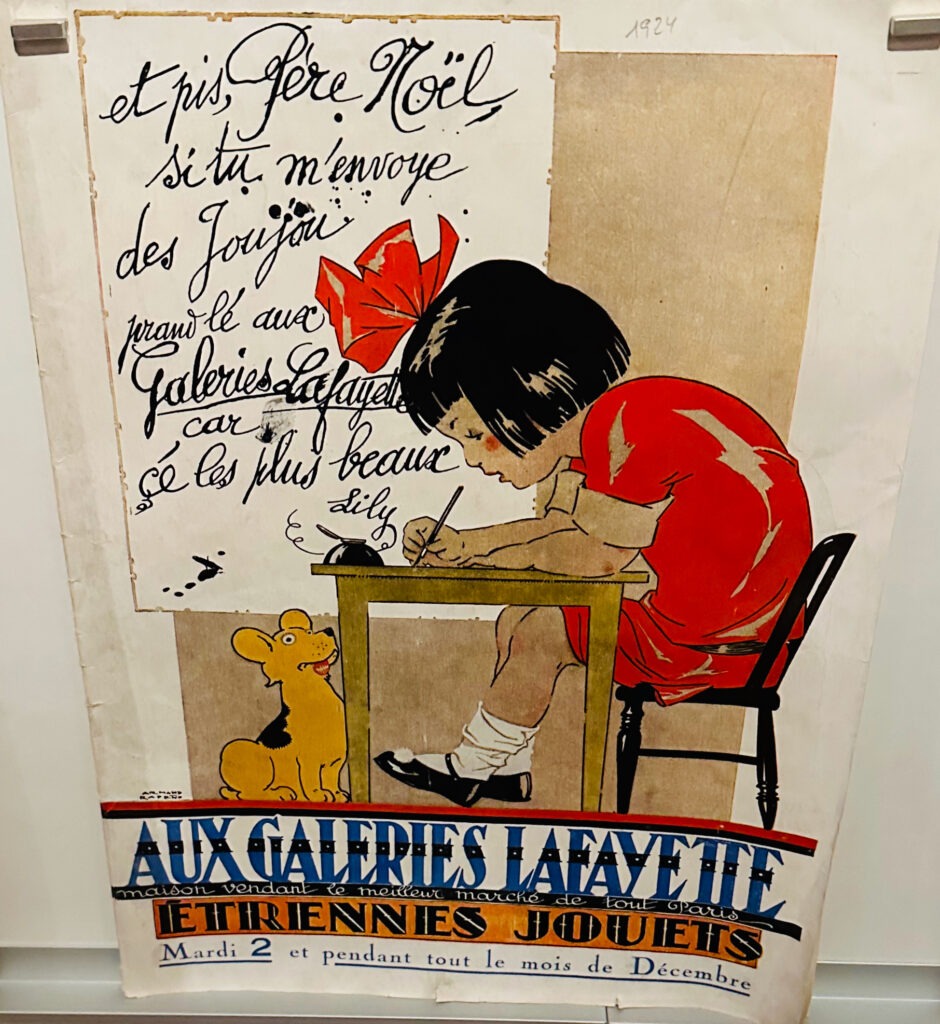 1924
et pis, Père Noël,
si tu m'envoye
des Joujou
prand lé aux
Galeries Lafayette
car
çé les plus beaux
Lily
ARMAND
RAPEÑO
AUX GALERIES LAFAYETTE
maison vendant le meilleur marché de tout Paris
ÉTRENNES JOUETS
Mardi 2 et pendant tout le mois de Décembre